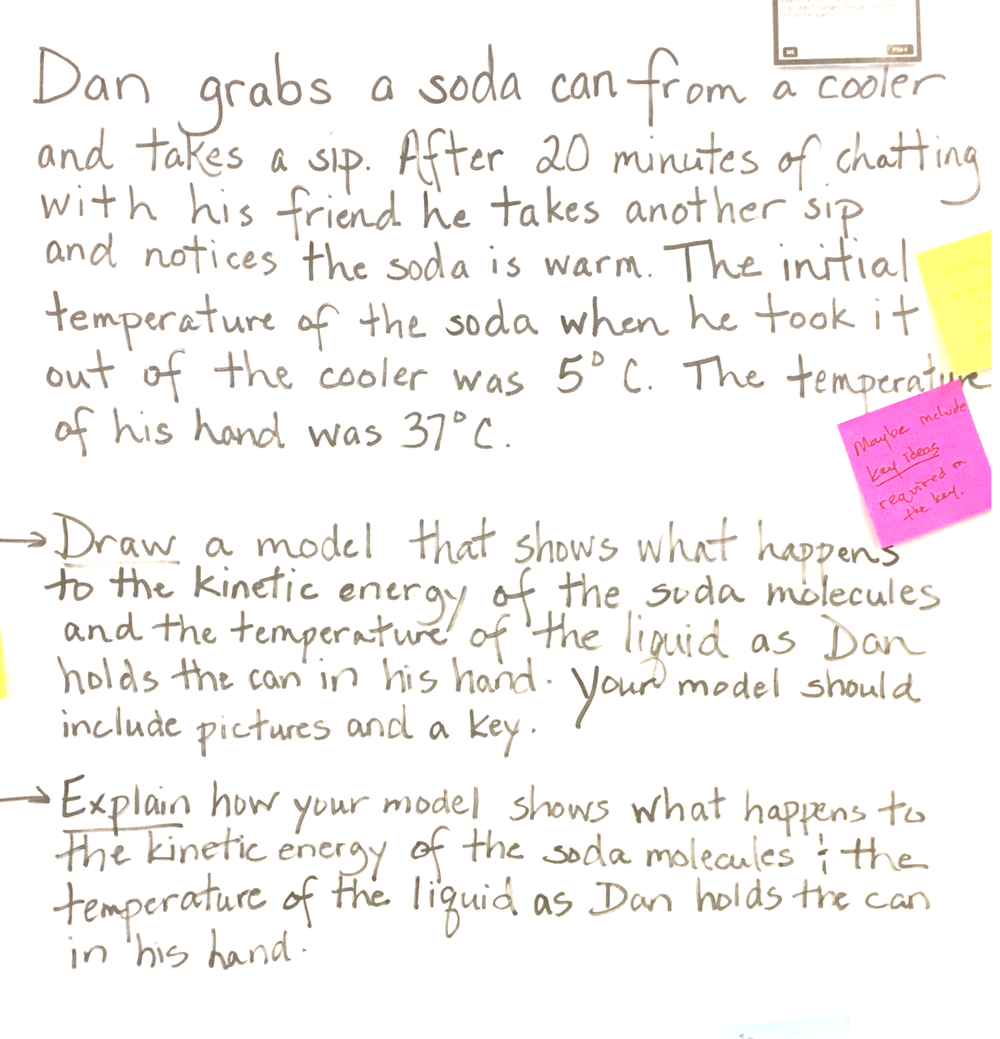 Dan grabs a soda can from a cooler
and takes a sip. After 20 minutes of chatting
with his friend he takes another sip
and notices the soda is warm. The initial
temperature of the soda when he took it
out of the cooler was 5° C. The temperature
of his hand was 37°C.
Maybe include
key ideas
required in
the key.
→ Draw a model that shows what happens
to the kinetic energy of the soda molecules
and the temperature of the liquid as Dan
holds the can in his hand. Your model should
include pictures and a key.
→ Explain how your model shows what happens to
the kinetic energy of the soda molecules & the
temperature of the liquid as Dan holds the can
in his hand.